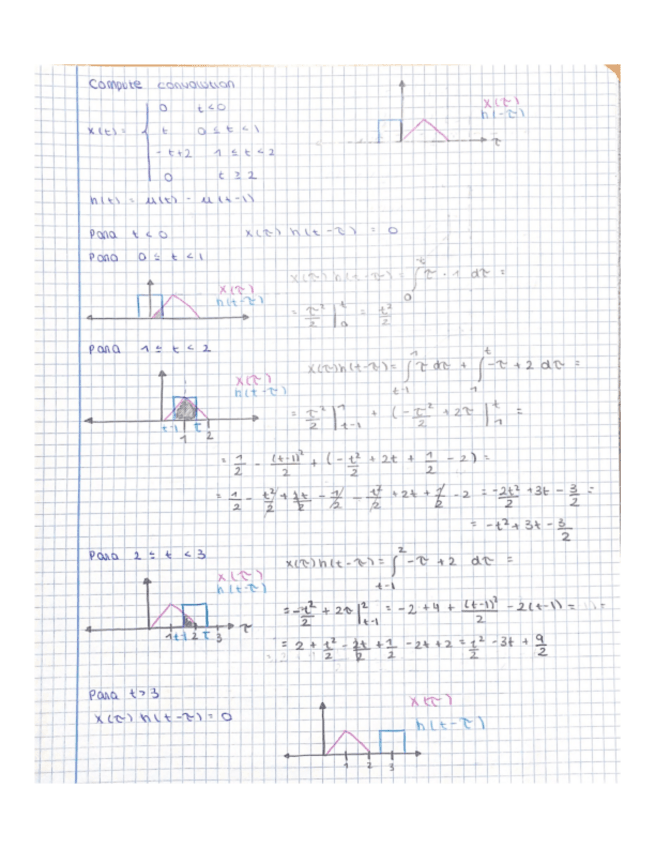 Compute convolution
x(t) = { 0 t<0
t 0 ≤ t < 1
-t+2 1 ≤ t < 2
0 t ≥ 2
x(τ)
h(-τ)
τ
h(t) = u(t) - u(t-1)
Para t < 0 x(τ) h(t-τ) = 0
Para 0 ≤ t < 1
x(τ)
h(t-τ)
x(τ) h(t-τ) = ∫₀ᵗ τ · 1 dτ =
= τ²/2 |₀ᵗ = t²/2
Para 1 ≤ t < 2
x(τ)
h(t-τ)
t-1 t
1 2
x(τ)h(t-τ) = ∫_{t-1}^{1} τ dτ + ∫_{1}^{t} -τ + 2 dτ =
= τ²/2 |_{t-1}^{1} + (-τ²/2 + 2τ |_{1}^{t} =
= 1/2 - (t-1)²/2 + (-t²/2 + 2t + 1/2 - 2) =
= 1/2 - t²/2 + 2t/2 - 1/2 - t²/2 + 2t + 1/2 - 2 = -2t²/2 + 3t - 3/2 =
= -t² + 3t - 3/2
Para 2 ≤ t < 3
x(τ)
h(t-τ)
1 t-1 2 t 3 τ
x(τ)h(t-τ) = ∫_{t-1}^{2} -τ + 2 dτ =
= -τ²/2 + 2τ |_{t-1}^{2} = -2 + 4 + (t-1)²/2 - 2(t-1) =
= 2 + t²/2 - 2t/2 + 1/2 - 2t + 2 = t²/2 - 3t + 9/2
Para t > 3
x(τ) h(t-τ) = 0
x(τ)
h(t-τ)
1 2 3